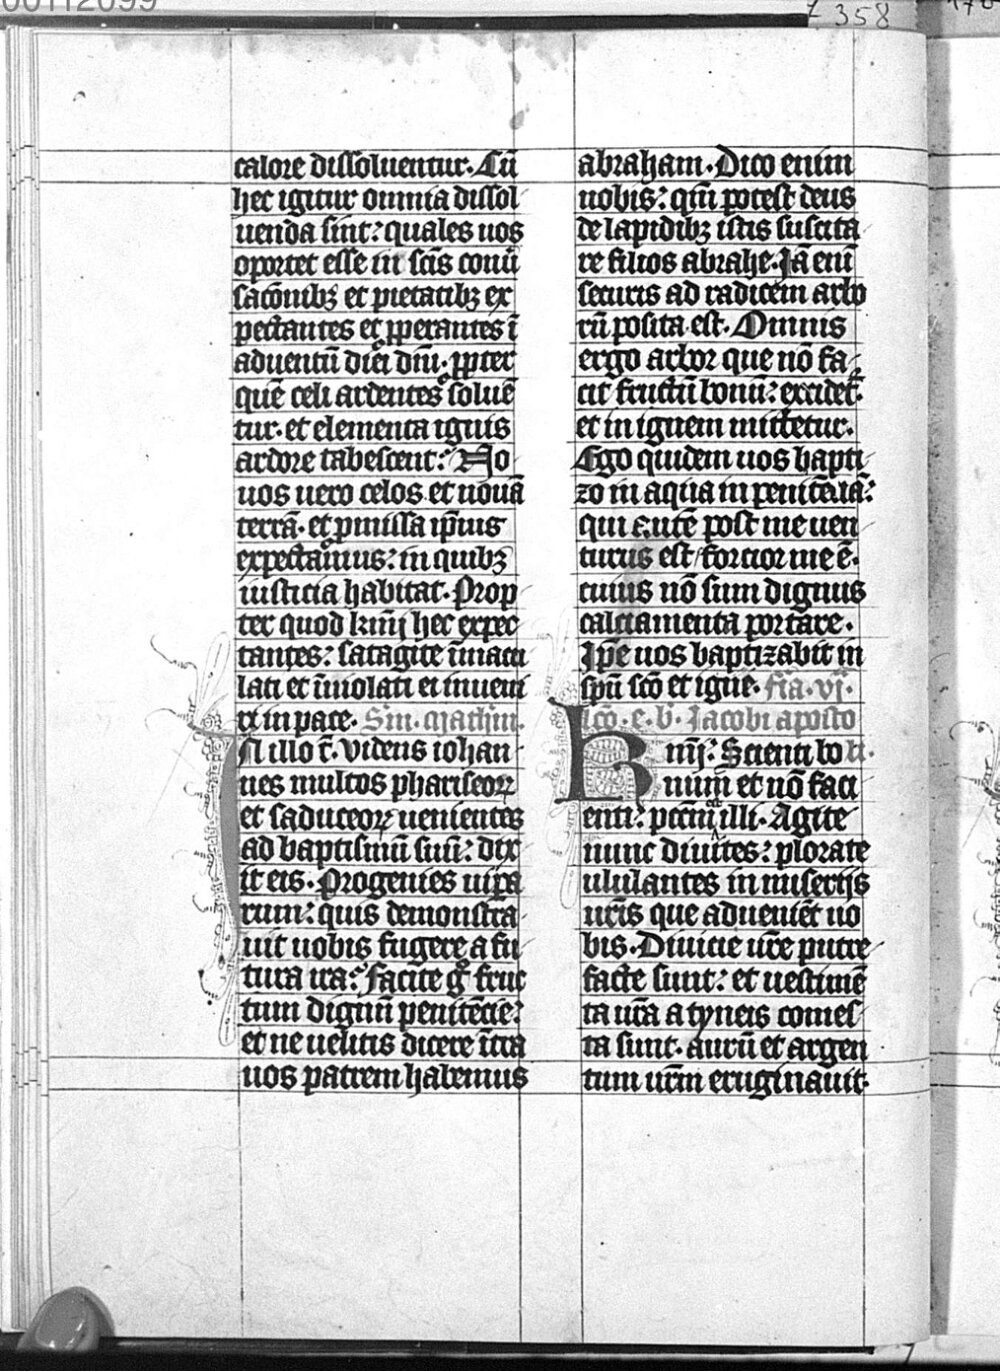 00112099
358
calore dissoluentur. Cū
hec igitur omnia dissol
uenda sint: quales uos
oportet esse in sc̄is conu̇
sac̄onibꝫ et pietatibꝫ ex
pectantes et ꝓperantes ī
aduentū diei dn̄i. ꝓpter
quē celi ardentes soluē
tur. et elementa ignis
ardore tabescent: No
uos uero celos et nouā
terrā. et ꝓmissa ip̄ius
expectamus: in quibꝫ
iusticia habitat. Prop
ter quod kr̄mi hec expec
tantes: satagite īmacu
lati et īuiolati ei inueni
ri in pace. Sm̄. matheum.
In illo t̄. Videns iohan
nes multos phariseoꝝ
et saduceoꝝ uenientes
ad baptismū suū: dix
it eis. Progenies uipe
rum: quis demonstra
uit uobis fugere a fu
tura ira: Facite gͦ fruc
tum dignū penitēcie:
et ne uelitis dicere īt̄ra
uos patrem habemus
abraham. Dico enim
uobis: qm̄ potest deus
de lapidibꝫ istis suscita
re filios abrahe. Jā enī
securis ad radicem arbo
rū posita est. Omnis
ergo arbor que nō fa
cit fructū bonū: excidet̄.
et in ignem mittetur.
Ego quidem uos bapti
zo in aqua in penitēciā:
qui autē post me uen
turus est fortior me ē.
cuius nō sum dignus
calciamenta portare.
Ip̄e uos baptizabit in
sp̄u sc̄o et igne. fr̄ia. vj.
lc̄o. e. b. Jacobi aposto
li.
Kr̄mi: Scienti bo
num et nō faci
enti: pccm̄ ē illi. Agite
nunc diuites: plorate
ululantes in miserijs
ur̄is que aduenient uo
bis. Diuicie ur̄e putre
facte sunt: et uestimē
ta ur̄a a tyneis comes
ta sunt. aurū et argen
tum ur̄m eruginauit.